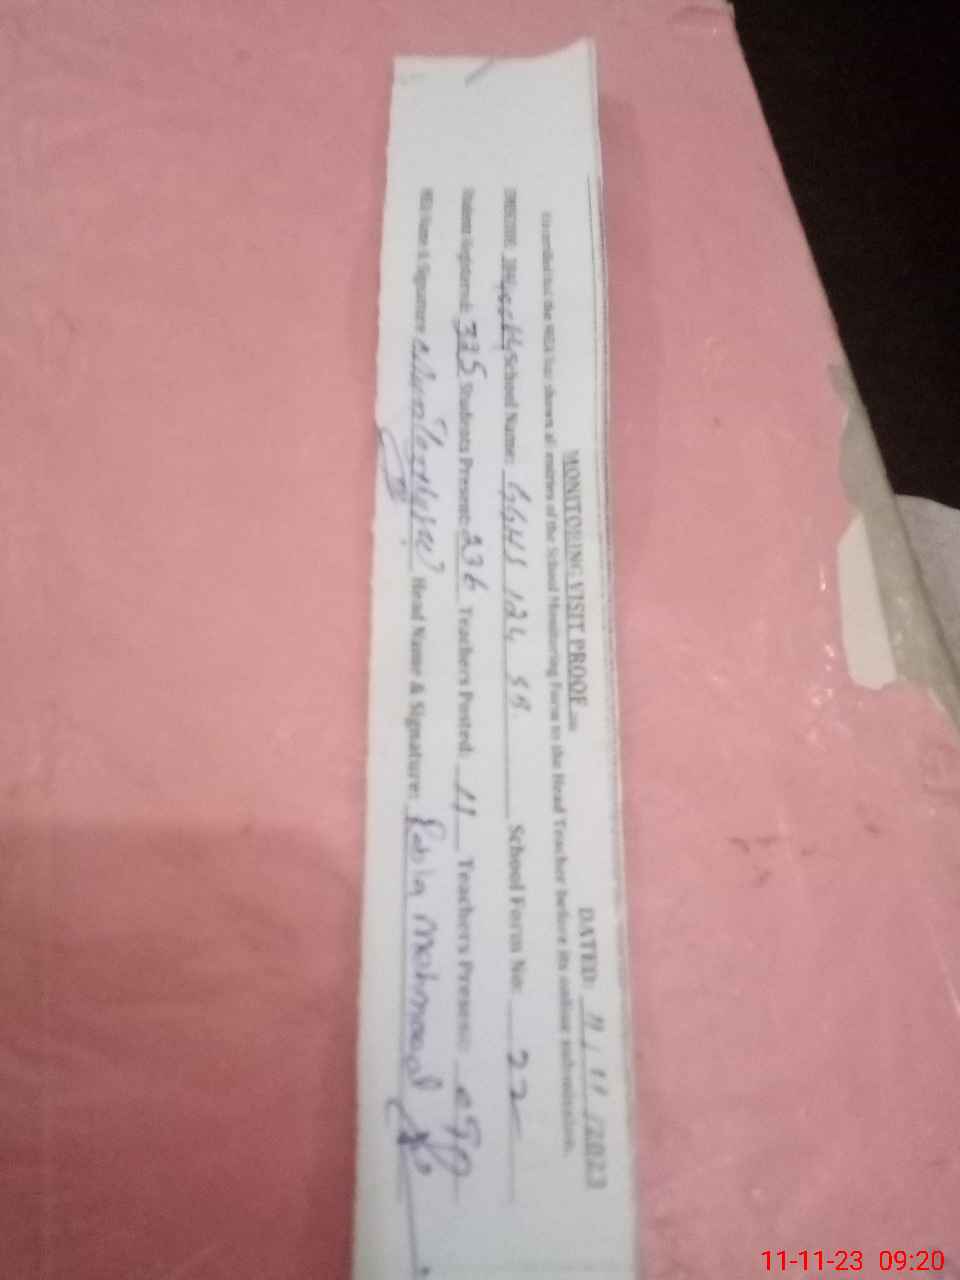 MONITORING VISIT PROOF DATED: 11/11/2023
It is certified that the MEA has shown all entries of the School Monitoring Form to the Head Teacher before its online submission.
School Name: GGHS 124 SB School Form No: 22
Student Registered: 335 Students Present: 236 Teachers Posted: 11 Teachers Present:
MEA Name & Signature Head Name & Signature: Mahmood
11-11-23 09:20